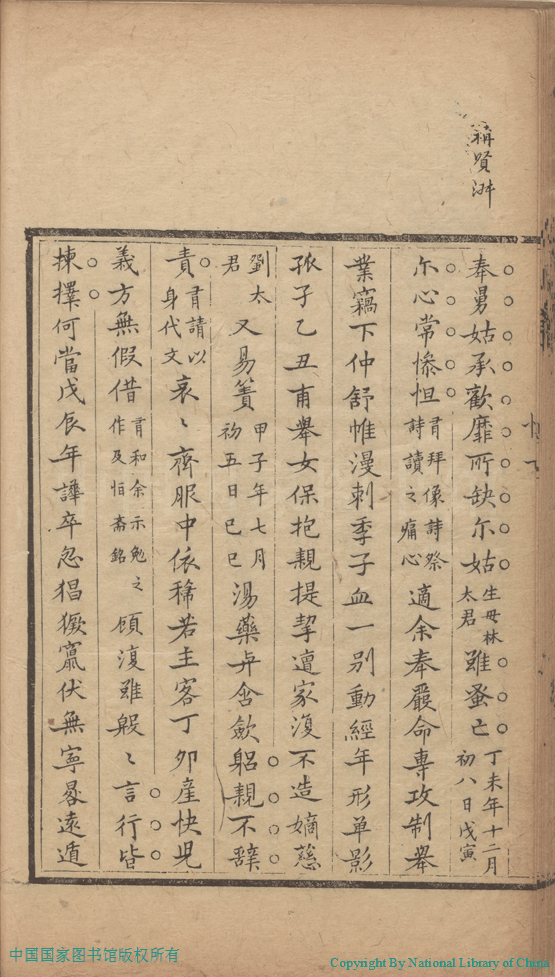 稱賢淋
奉舅姑承歡靡所缺尔姑生母林太君雖蚤亡丁未年十二月初八日戊寅
尔心常慘怛肎拜像詩祭詩讀之痛心適余奉嚴命專攻制舉
業竊下仲舒帷漫刺季子血一别動經年形单影
孤子乙丑甫舉女保抱親提挈亶家復不造嫡慈
劉太君又易簀甲子年七月初五日巳巳湯藥與含歛躬親不辤
責肎請以身代文哀〻齊服中依稀若主客丁夘産快児
義方無假借肎和余示勉之作及怕齋銘顧復雖殷〻言行皆
揀擇何當戊辰年譁卒忽猖獗竄伏無寧晷遠遁
中国国家图书馆版权所有
Copyright By National Library of China